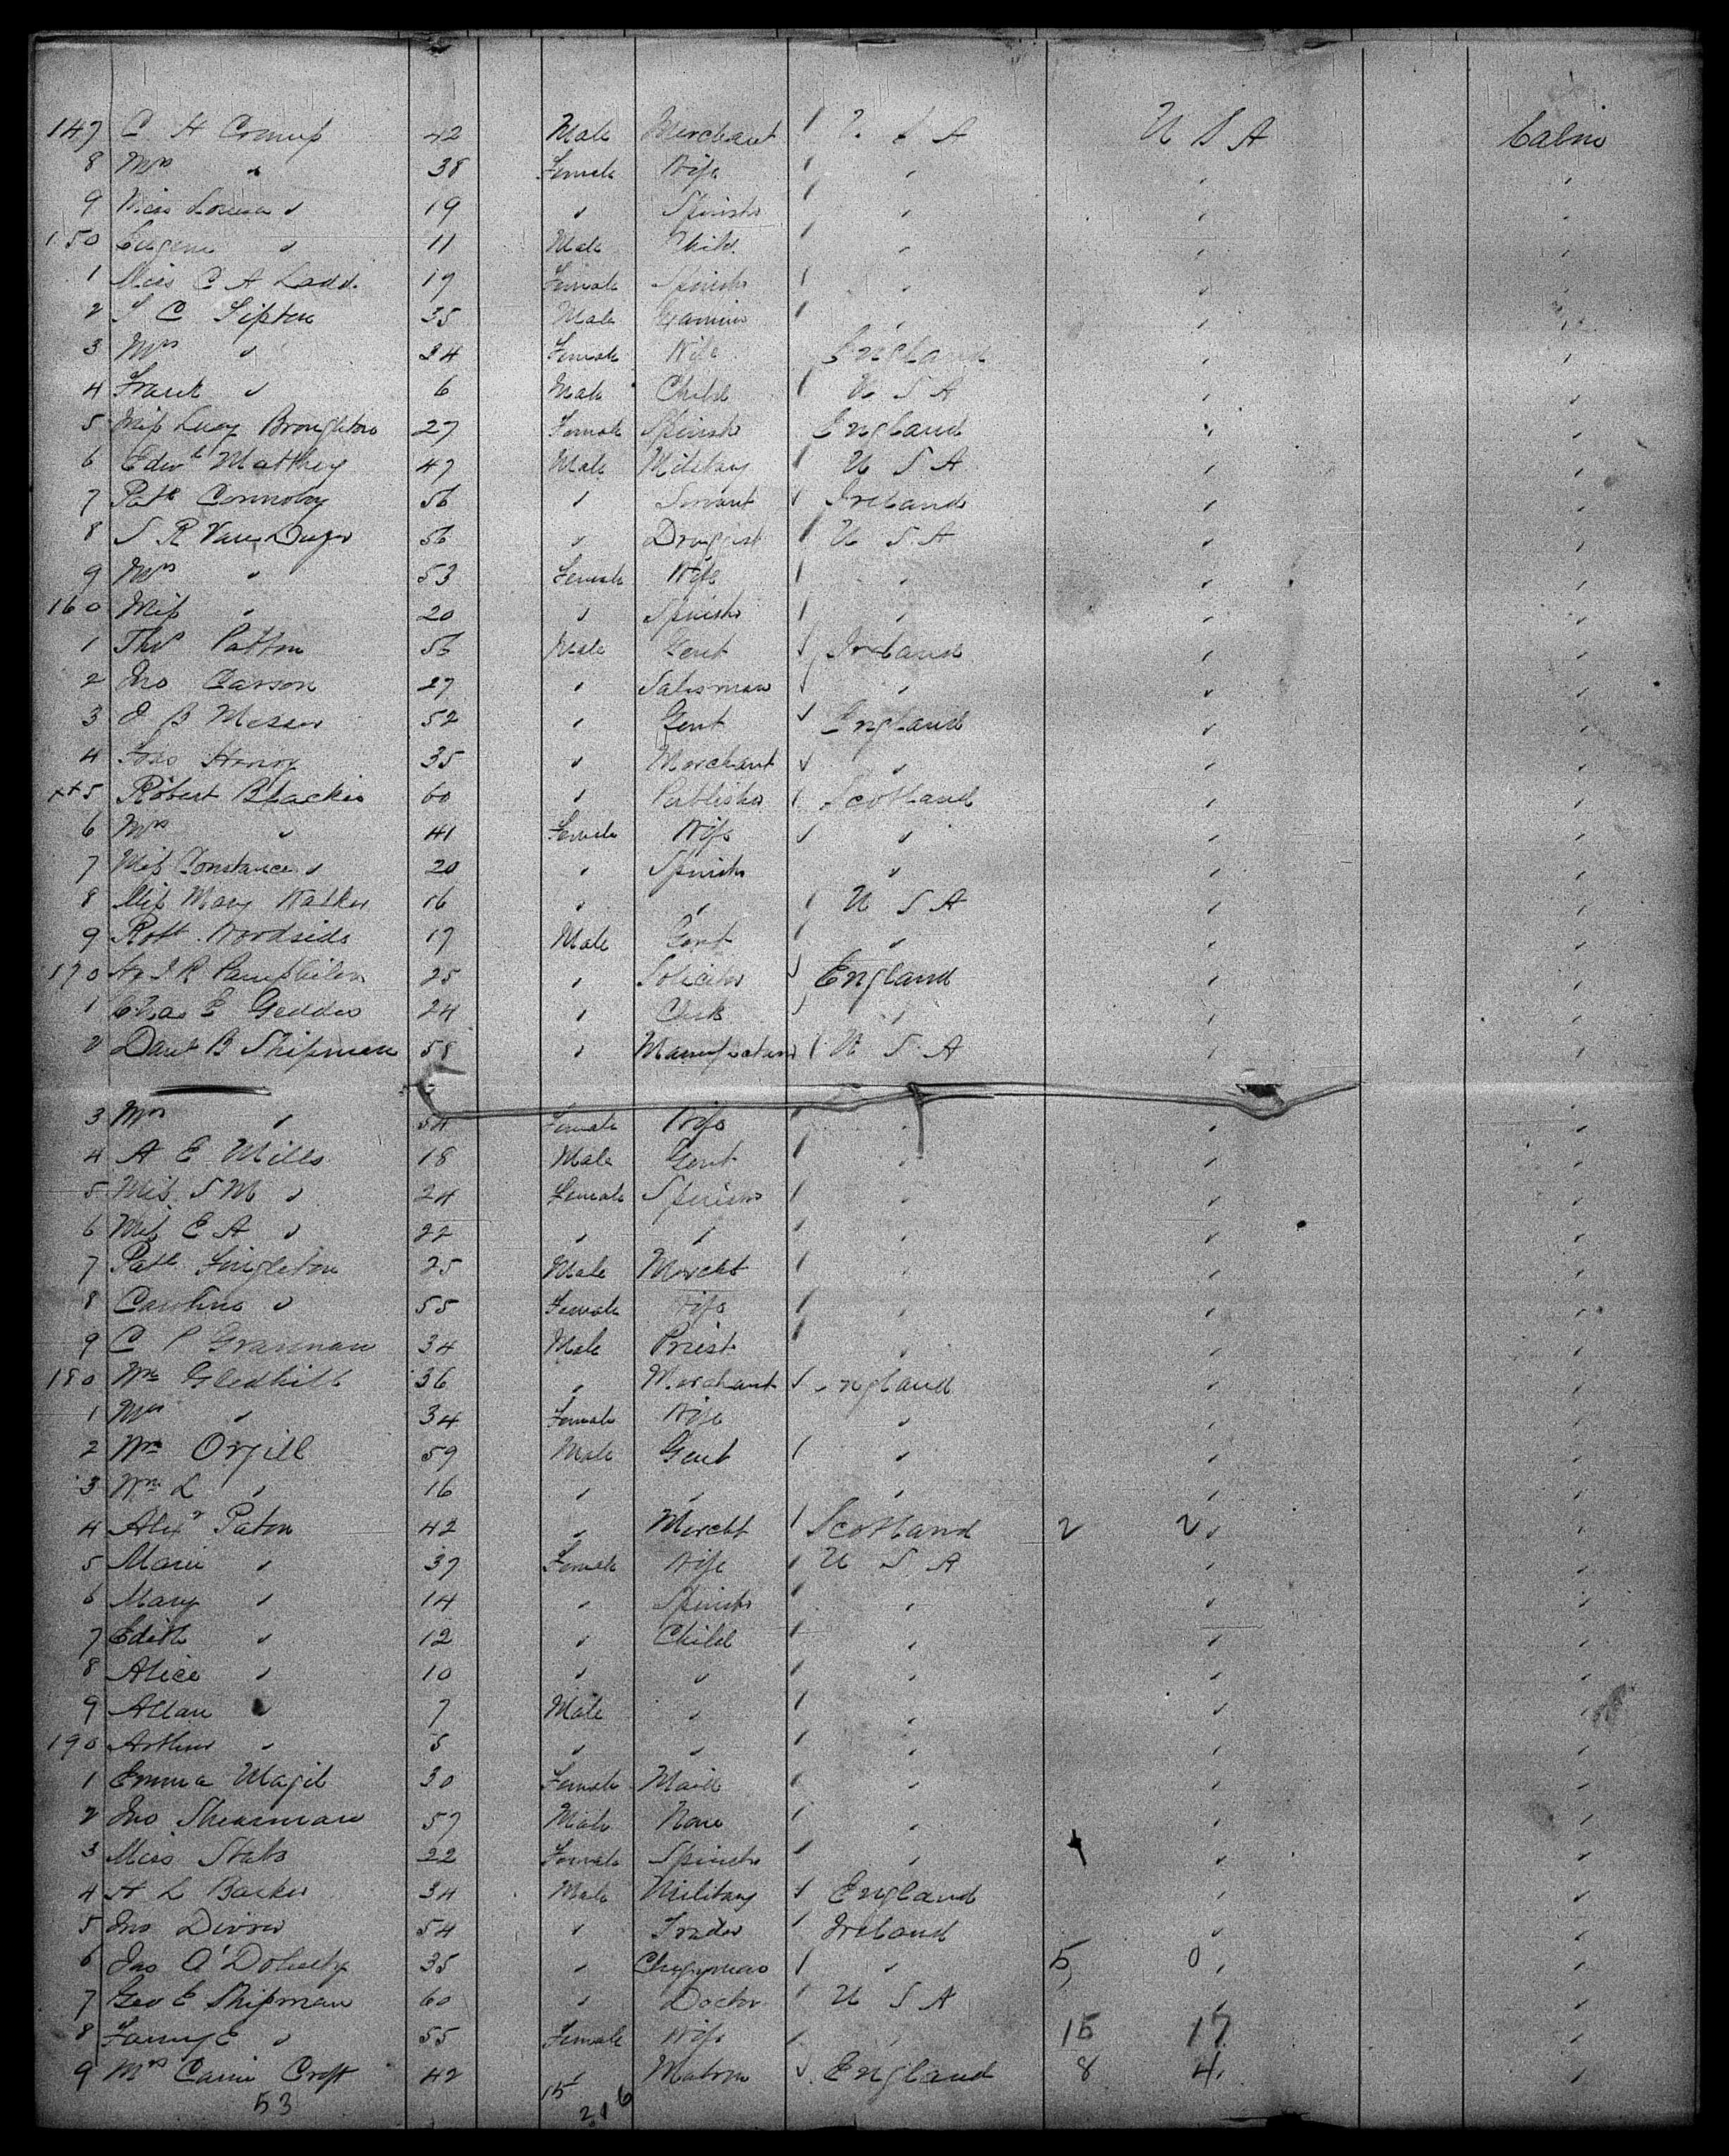 147 C H 42 Male Merchant U S A U S A Cabin
8 Mrs " 38 Female Wife " " "
9 Miss Louisa " 19 " Spinster " " "
150 Eugene " 11 Male Child " " "
1 Miss C A Ladd 19 Female Spinster " " "
2 S C 35 Male " " "
3 Mrs " 34 Female Wife England " "
4 Frank " 6 Male Child U S A " "
5 Miss Lucy Broughton 27 Female Spinster England " "
6 Edwd Matthey 47 Male Military U S A " "
7 Patk 56 " Servant Ireland " "
8 S R Van Duzer 56 " Druggist U S A " "
9 Mrs " 53 Female Wife " " "
160 Miss " 20 " Spinster " " "
1 Thos Patton 56 Male Gent Ireland " "
2 Jno Carson 27 " Salesman " " "
3 B Messer 52 " Gent England " "
4 Henry 35 " Merchant " " "
5 Robert Blackie 60 " Publisher Scotland " "
6 Mrs " 41 Female Wife " " "
7 Miss Constance " 20 " Spinster " " "
8 Miss Mary Walker 16 " " U S A " "
9 Robt Woodside 17 Male Gent " " "
170 25 " Solicitor England " "
1 Chas E Geddes 24 " Clerk " " "
2 Danl B Shipman 58 " Manufacturer U S A " "
3 Mrs " 54 Female Wife " " "
4 A E Mills 18 Male Gent " " "
5 Miss S M " 24 Female Spinster " " "
6 Miss E A " 22 " " " " "
7 Patk Singleton 25 Male Mercht " " "
8 Caroline " 55 Female Wife " " "
9 C P Grannan 34 Male Priest " " "
180 Wm Gledhill 36 " Merchant England " "
1 Mrs " 34 Female Wife " " "
2 Wm Orgill 59 Male Gent " " "
3 Wm L " 16 " " " " "
4 Alexr Paton 42 " Mercht Scotland 2 2 " "
5 Marie " 37 Female Wife U S A " "
6 Mary " 14 " Spinster " " "
7 Edith " 12 " Child " " "
8 Alice " 10 " " " " "
9 Allan " 7 Male " " " "
190 Arthur " 5 " " " " "
1 Emma Magil 30 Female Maid " " "
2 Jno Shearman 57 Male None " " "
3 Miss 22 Female Spinster " " "
4 A L Barker 34 Male Military England " "
5 Jno 54 " Trader Ireland " "
6 Jas O'Doherty 35 " Clergyman " 5 0 " "
7 Geo E Shipman 60 " Doctor U S A " "
8 Fanny E " 55 Female Wife " 15 17 "
9 Mrs Carrie Croft 42 " Matron England 8 4 "
53 15 2 1 6